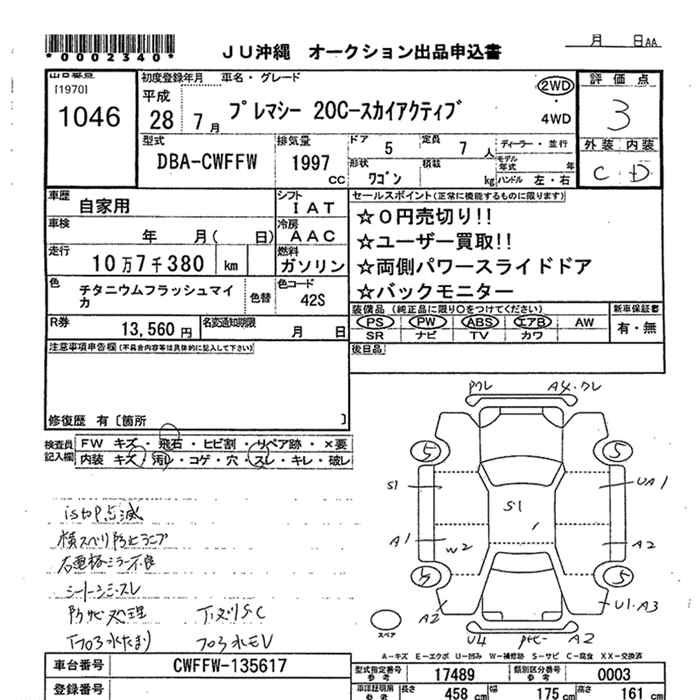 *0002340*
JU沖縄 オークション出品申込書
月 日AA
[1970]
1046
初度登録年月 車名・グレード
平成
28 7月
プレマシー 20C-スカイアクティブ
2WD
・
4WD
評価点
3
外装 内装
C D
型式
DBA-CWFFW
排気量
1997 cc
ドア 5
定員 7 人
ディーラー・並行
形状 ワゴン
積載 kg
モデル年式 年
ハンドル 左・右
車歴 自家用
シフト IAT
車検 年 月( 日)
冷房 AAC
走行 10万7千380 km
燃料 ガソリン
色 チタニウムフラッシュマイカ
色替
色コード 42S
R券 13,560円
名変通知期限 月 日
セールスポイント(正常に機能するものに限ります)
☆0円売切り!!
☆ユーザー買取!!
☆両側パワースライドドア
☆バックモニター
装備品 (純正品に限り○をつけてください)
PS PW ABS エアB AW
SR ナビ TV カワ
新車保証書
有・無
後日品
注意事項申告欄(不具合内容等は具体的に記入して下さい)
修復歴 有〔箇所 〕
検査員記入欄
FW キズ・飛石・ヒビ割・リペア跡・×要
内装 キズ・汚レ・コゲ・穴・スレ・キレ・破レ
istop点滅
横スベリ防止ランプ
右電格ミラー不良
シートシミ・スレ
防サビ処理 下ヌリS.C
フロア水モレ
クレ A4.クレ
5 5
S1 S1 UA1
A1 W2 A2
5
A2 U1.A3
スペア
U4 A2
A-キズ E-エクボ U-凹み W-補修跡 S-サビ C-腐食 XX-交換済
車台番号 CWFFW-135617
登録番号
型式指定番号 参考 17489
類別区分番号 参考 0003
車検証期限 参考 長さ 458 cm 幅 175 cm 高さ 161 cm